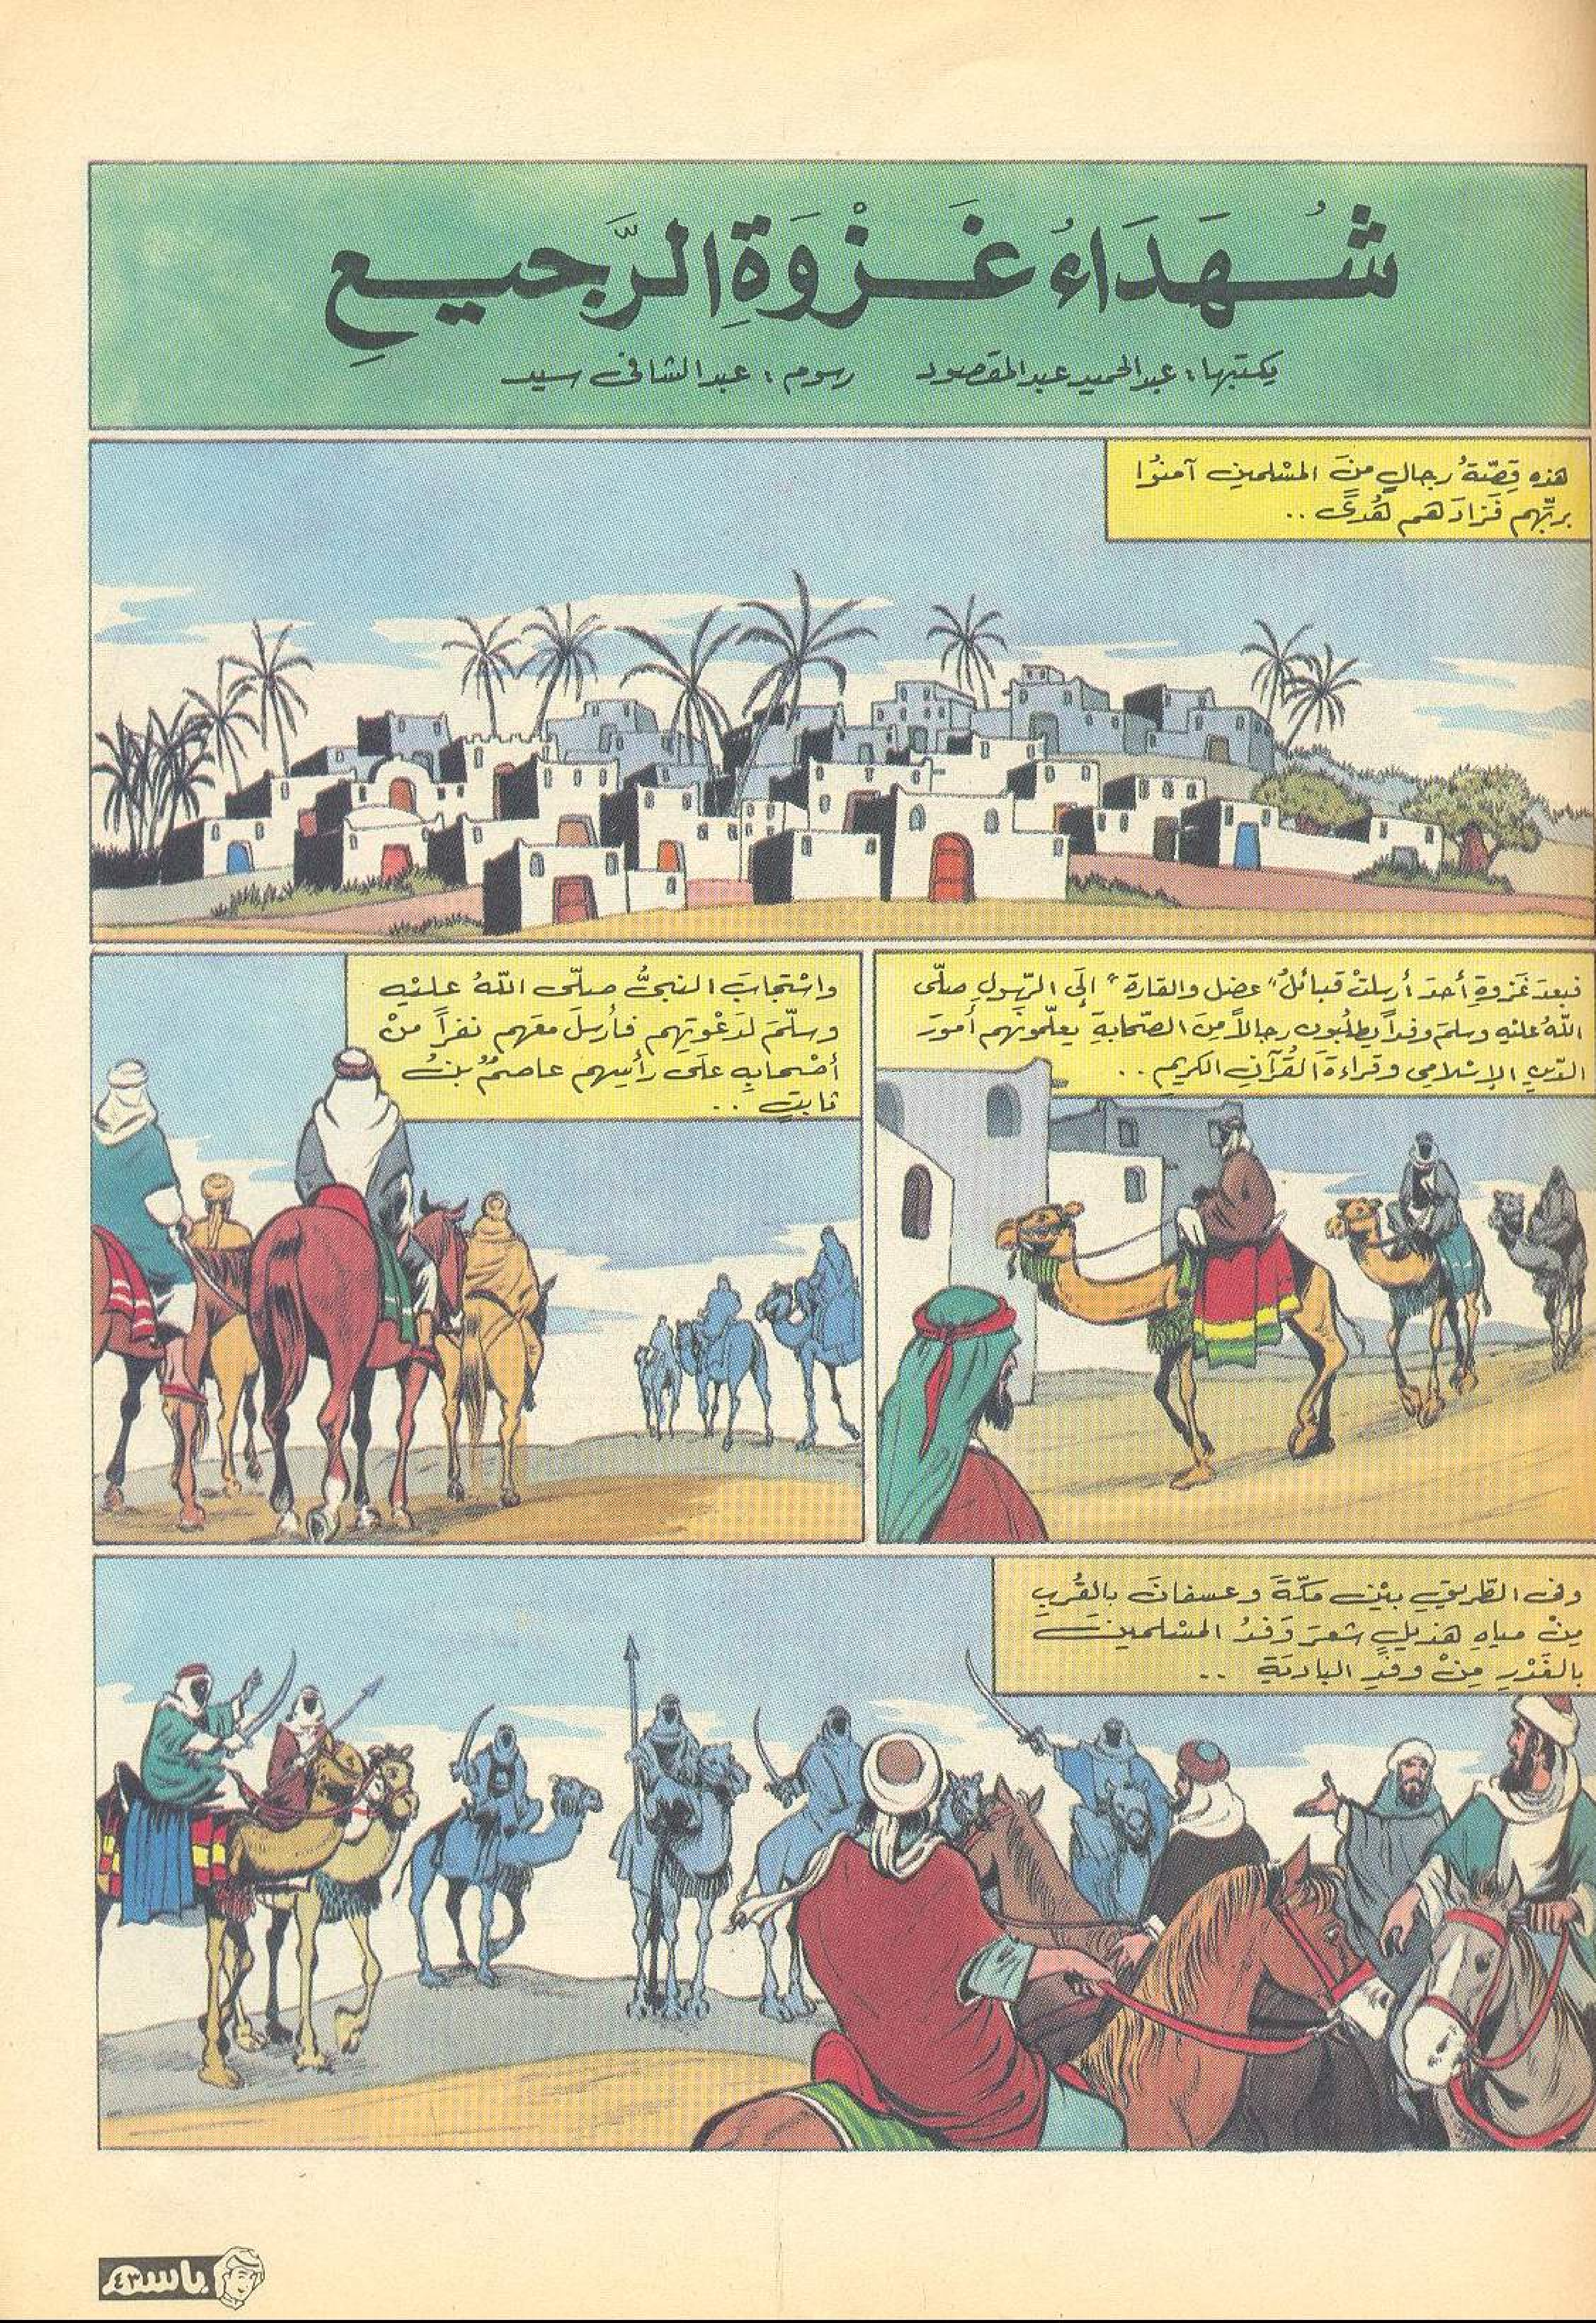 شُهَدَاءُ غَزْوَةِ الرَّجيعِ
يكتبها: عبدالحميد عبدالمقصود    رسوم: عبدالشافى سيد
هذه قِصّةُ رجالٍ منَ المسْلمين آمنوُا
بربِّهم فَزادَهم هُدىً ..
فبعدَ غَزوةِ أُحدَ أرسلتْ قبائلُ "عضل والقارة" إلَى الرّسولِ صلّى
اللّهُ عليْهِ وسلمَ وفداً يطلبُون رجالاً مِنَ الصّحابةِ يعلّمونَهم أمورَ
الدّينِ الإسْلامِى وقراءةَ القُرآنِ الكريمِ ..
واسْتجابَ النبىُّ صلّى اللّهُ عليْهِ
وسلّمَ لدَعْوتِهم فأرسلَ معَهم نفراً منْ
أصْحابِهِ علَى رأسِهم عاصمُ بنُ
ثابتٍ ..
وفى الطّريقِ بيْن مكّةَ وعسفانَ بالقُربِ
مِنْ مياهِ هذيلٍ شعرَ وَفدُ المسْلمينَ
بالغَدْرِ مِنْ وفدِ الباديَةِ ..
باسم
٤٣